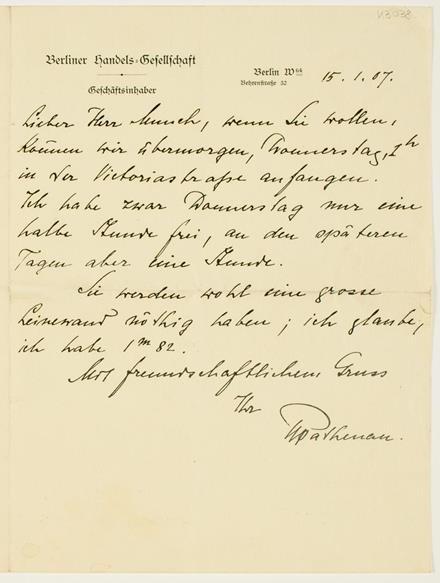 K3038.
Berliner Handels-Gesellschaft
Geschäftsinhaber
Berlin W64
Behrenstraße 32
15.1.07.
Lieber Herr Munch, wenn Sie wollen,
können wir übermorgen, Donnerstag, 1h
in der Victoriastrasse anfangen.
Ich habe zwar Donnerstag nur eine
halbe Stunde frei, an den späteren
Tagen aber eine Stunde.
Sie werden wohl eine grosse
Leinewand nöthig haben; ich glaube,
ich habe 1m 82.
Mit freundschaftlichem Gruss
Ihr
WRathenau.